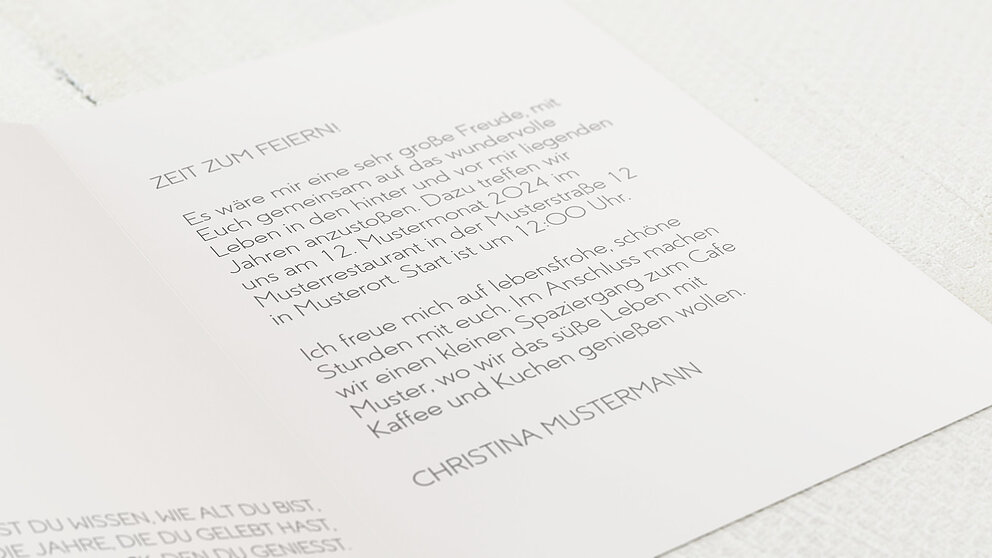 ZEIT ZUM FEIERN!
Es wäre mir eine sehr große Freude, mit
Euch gemeinsam auf das wundervolle
Leben in den hinter und vor mir liegenden
Jahren anzustoßen. Dazu treffen wir
uns am 12. Mustermonat 2024 im
Musterrestaurant in der Musterstraße 12
in Musterort. Start ist um 12:00 Uhr.
Ich freue mich auf lebensfrohe, schöne
Stunden mit euch. Im Anschluss machen
wir einen kleinen Spaziergang zum Cafe
Muster, wo wir das süße Leben mit
Kaffee und Kuchen genießen wollen.
CHRISTINA MUSTERMANN
ST DU WISSEN, WIE ALT DU BIST,
DIE JAHRE, DIE DU GELEBT HAST,
DEN DU GENIESST.